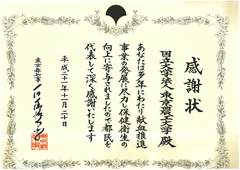 感謝状
国立大学法人東京農工大学殿
あなたは多年にわたり献血推進
事業の発展に尽力し保健衛生の
向上に寄与されましたので都民を
代表して深く感謝いたします
平成二十一年十一月二十日
東京都知事